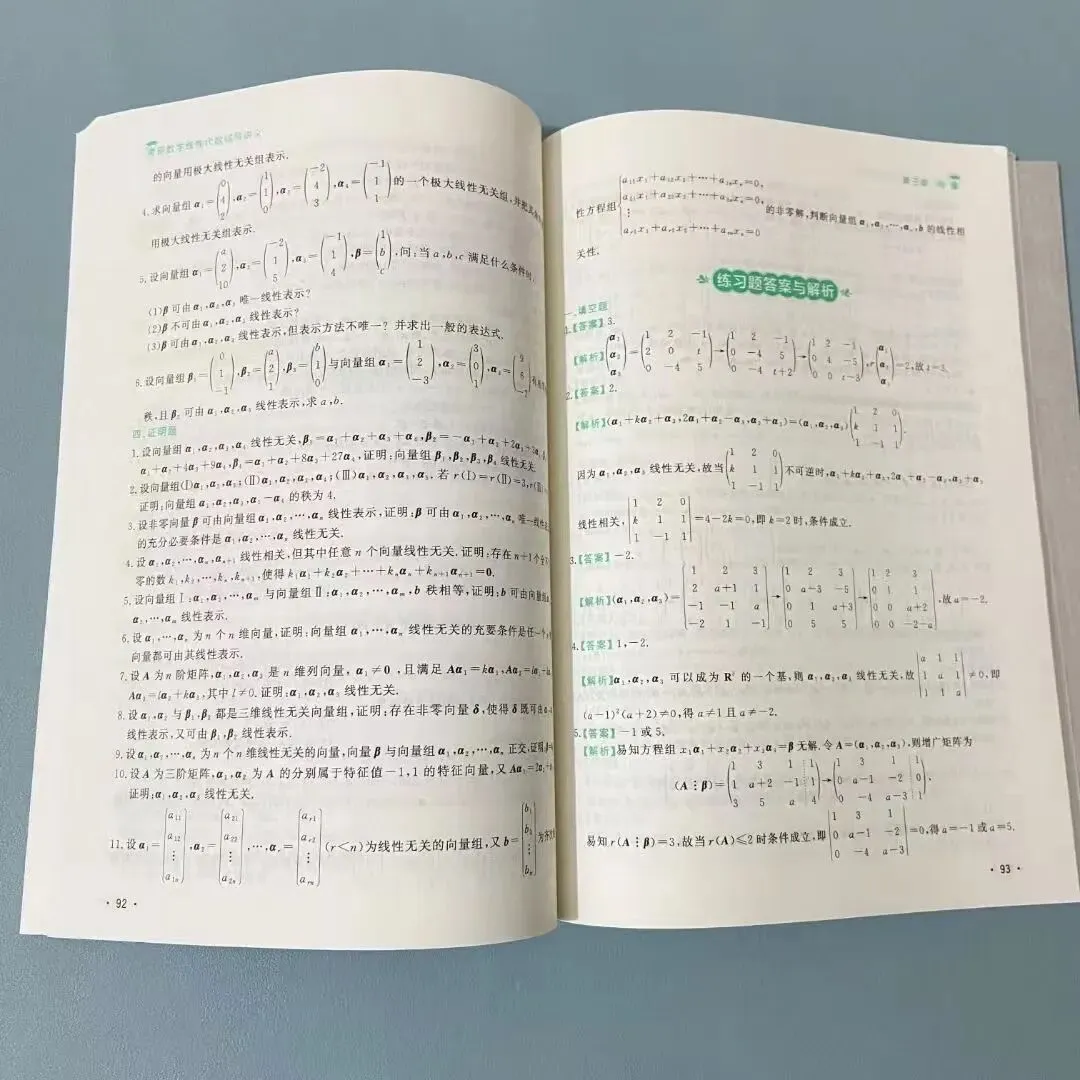 考研数学线性代数辅导讲义
的向量用极大线性无关组表示.
4.求向量组 α₁=(0 4 2),α₂=(1 1 0),α₃=(-2 4 3),α₄=(-1 1 1)的一个极大线性无关组,并把其余
用极大线性无关组表示.
5.设向量组 α₁=(a 2 10),α₂=(-2 1 5),α₃=(-1 1 4),β=(1 b c),问:当 a,b,c 满足什么条件时:
(1)β 可由 α₁,α₂,α₃ 唯一线性表示?
(2)β 不可由 α₁,α₂,α₃ 线性表示?
(3)β 可由 α₁,α₂,α₃ 线性表示,但表示方法不唯一?并求出一般的表达式.
6.设向量组 β₁=(0 1 -1),β₂=(a 2 1),β₃=(b 1 0)与向量组 α₁=(1 2 -3),α₂=(3 0 1),α₃=(9 6 -7)
秩,且 β₃ 可由 α₁,α₂,α₃ 线性表示,求 a,b.
四、证明题
1.设向量组 α₁,α₂,α₃,α₄ 线性无关,β₁=α₁+α₂+α₃+α₄,β₂=-α₁+α₂+2α₃
α₁+α₂+4α₃+9α₄,β₄=α₁+α₂+8α₃+27α₄,证明:向量组 β₁,β₂,β₃,β₄ 线性无关.
2.设向量组(Ⅰ)α₁,α₂,α₃;(Ⅱ)α₁,α₂,α₃,α₄;(Ⅲ)α₁,α₂,α₃,α₅,若 r(Ⅰ)=r(Ⅱ)=3,r(Ⅲ)
证明:向量组 α₁,α₂,α₃,α₅-α₄ 的秩为 4.
3.设非零向量 β 可由向量组 α₁,α₂,⋯,αₙ 线性表示,证明:β 可由 α₁,α₂,⋯,αₙ 唯一线性
的充分必要条件是 α₁,α₂,⋯,αₙ 线性无关.
4.设 α₁,α₂,⋯,αₙ,αₙ₊₁ 线性相关,但其中任意 n 个向量线性无关.证明:存在 n+1 个全
零的数 k₁,k₂,⋯,kₙ,kₙ₊₁,使得 k₁α₁+k₂α₂+⋯+kₙαₙ+kₙ₊₁αₙ₊₁=0.
5.设向量组Ⅰ:α₁,α₂,⋯,αₘ 与向量组Ⅱ:α₁,α₂,⋯,αₘ,b 秩相等,证明:b 可由向量组
α₂,⋯,αₘ 线性表示.
6.设 α₁,⋯,αₙ 为 n 个 n 维向量,证明:向量组 α₁,⋯,αₙ 线性无关的充要条件是任一个
向量都可由其线性表示.
7.设 A 为 n 阶矩阵,α₁,α₂,α₃ 是 n 维列向量,α₁≠0,且满足 Aα₁=kα₁,Aα₂=lα₁+
Aα₃=lα₂+kα₃,其中 l≠0.证明:α₁,α₂,α₃ 线性无关.
8.设 α₁,α₂ 与 β₁,β₂ 都是三维线性无关向量组,证明:存在非零向量 δ,使得 δ 既可由
线性表示,又可由 β₁,β₂ 线性表示.
9.设 α₁,α₂,⋯,αₙ 为 n 个 n 维线性无关的向量,向量 β 与向量组 α₁,α₂,⋯,αₙ 正交,证明
10.设 A 为三阶矩阵,α₁,α₂ 为 A 的分别属于特征值-1,1 的特征向量,又 Aα₃=
证明:α₁,α₂,α₃ 线性无关.
11.设 α₁=(a₁₁ a₁₂ ⋮ a₁ₙ),α₂=(a₂₁ a₂₂ ⋮ a₂ₙ),⋯,αᵣ=(aᵣ₁ aᵣ₂ ⋮ aᵣₙ)(r<n)为线性无关的向量组,又 b=(b₁ b₂ ⋮ bₙ)
· 92 ·
第三章 向 量
性方程组{a₁₁x₁+a₁₂x₂+⋯+a₁ₙxₙ=0,
a₂₁x₁+a₂₂x₂+⋯+a₂ₙxₙ=0,
⋮
aᵣ₁x₁+aᵣ₂x₂+⋯+aᵣₙxₙ=0
的非零解,判断向量组 α₁,α₂,⋯,αᵣ,b 的线性相
关性.
练习题答案与解析
一、填空题
1.【答案】3.
【解析】(α₁ α₂ α₃)=(1 2 -1; 2 0 t; 0 -4 5)→(1 2 -1; 0 -4 5; 0 -4 t+2)→(1 2 -1; 0 4 -5; 0 0 t-3),r(α₁ α₂ α₃)=2,故 t=3.
2.【答案】2.
【解析】(α₁+kα₂+α₃,2α₁+α₂-α₃,α₂+α₃)=(α₁,α₂,α₃)(1 2 0; k 1 1; 1 -1 1).
因为 α₁,α₂,α₃ 线性无关,故当(1 2 0; k 1 1; 1 -1 1)不可逆时,α₁+kα₂+α₃,2α₁+α₂-α₃,α₂+α₃
线性相关,|1 2 0; k 1 1; 1 -1 1|=4-2k=0,即 k=2 时,条件成立.
3.【答案】-2.
【解析】(α₁,α₂,α₃)=(1 2 3; 2 a+1 1; -1 -1 a; -2 1 -1)→(1 2 3; 0 a-3 -5; 0 1 a+3; 0 5 5)→(1 2 3; 0 1 1; 0 0 a+2; 0 0 -2-a),故 a=-2.
4.【答案】1,-2.
【解析】α₁,α₂,α₃ 可以成为 R³ 的一个基,则 α₁,α₂,α₃ 线性无关,故|a 1 1; 1 a 1; 1 1 a|≠0,即
(a-1)²(a+2)≠0,得 a≠1 且 a≠-2.
5.【答案】-1 或 5.
【解析】易知方程组 x₁α₁+x₂α₂+x₃α₃=β 无解.令 A=(α₁,α₂,α₃),则增广矩阵为
(A⋮β)=(1 3 1 1; 1 a+2 -1 1; 3 5 a 4)→(1 3 1 1; 0 a-1 -2 0; 0 -4 a-3 1).
易知 r(A⋮β)=3,故当 r(A)≤2 时条件成立,即|1 3 1; 0 a-1 -2; 0 -4 a-3|=0,得 a=-1 或 a=5.
· 93 ·